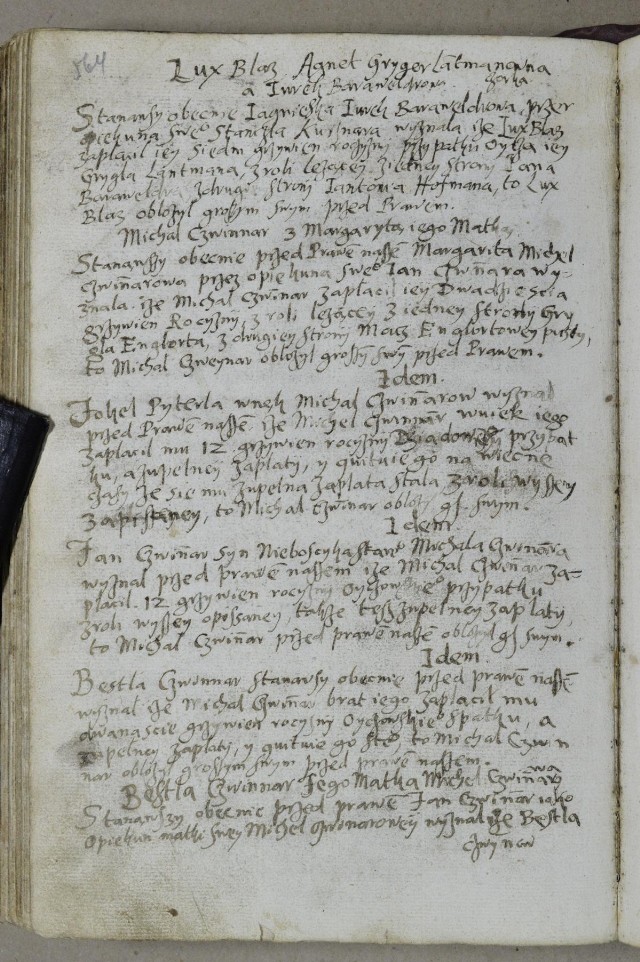 564
Lux Blaz Agnet Grygerlātmanowna
a Iureh Baraweldrowa. Zorka
Stanąwsy obecnie Iagnieszka Iureh Baraweldrowa, przez
opiekuna swe° Stanisla Kusnara, wyznala iże Lux Blaz
zaplacil iey siedm grzywien rocyzny przypathu oytza iey
Grygla Lantmana, z roli lezącey z iedney Strony Iana
Baraweldra z drugi Strony Iantonia Hofmana, to Lux
Blaz oblozyl grossym swym przed Prawem.
Michal Czwinnar z Margarytą iego Mathą
Stanąwszy obecnie przed Prawē nassē Margarita Michel
Czwinarowa przez opiekuna swe° Ian Czwinara wy-
znala iże Michal Czwinar zaplacil iey Dwadziescia
grzywien Rocyzny, z roli leżącey z iedney Strony Gry
gla Englorta, z drugiey strony Macz Englortowey pusty,
to Michal Czweynar oblozyl grossȳ swȳ przed Prawem.
Idem.
Iokel Pyterla wnęk Michal Czwinarow wyznal
przed Prawē nassē iże Michel Czwinnar wuiek iego
zaplacil mu 12 grzywien rocyzny Dziadowskey przypat
ku, a zupelney zaplaty, y quituie go na wieczne
czasy że sie mu zupelna zaplata stala z roli wyssey
zapissaney, to Michal Czwinar obloz: gr. swym.
Idem.
Ian Czwinar syn Nieboscyka Stare° Michala Czwinara
wyznal przed Prawē nassem iże Michal Czwinar za-
placil. 12 grzywien rocyzny Oycowskie° przypatku
z roli wyssey opissaney, takze tesz zupelney zaplaty,
to Michal Czwinar przed prawē nassē oblozyl gr swym.
Idem.
Bestla Czwinnar stanawsy obecnie przed prawē nassē
wyznal iże Michal Czwinar brat iego zaplacil mu
dwanascie grzywien rocyzny Oycowskie° spatku, a
zupelney zaplaty, y quituie go s te°, to Michal Czwin
nar oblozyl grossym swym przed prawē nassem.
Bestla Czwinnar Iego Matka Michel Czwinarowa
Stanąwszy obecnie przed prawē Ian Czwinar iako
opiekun matki swey Michel Czwinarowey wyznal iże Bestla
Czwynar